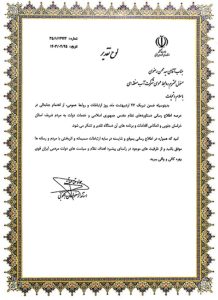 لوح تقدیر
جناب آقای سید حسن رضوی
مسئول محترم روابط عمومی شرکت آب منطقه ای
با سلام و احترام
بدینوسیله ضمن تبریک ۲۷ اردیبهشت ماه، روز ارتباطات و روابط عمومی، از اهتمام جنابعالی در
عرصه اطلاع رسانی دستاوردهای نظام مقدس جمهوری اسلامی و خدمات دولت به مردم شریف استان
خراسان جنوبی و انعکاس اقدامات و برنامه های آن دستگاه تقدیر و تشکر می شود.
امید است که همواره در اطلاع رسانی بموقع و شایسته در سایه ارتباطات صمیمانه و اثربخش با مردم و رسانه ها
موفق باشید و از ظرفیت های موجود در راستای پیشبرد اهداف نظام و سیاست های دولت مردمی ایران قوی
بهره کافی و وافی ببرید.
استاندار خراسان جنوبی